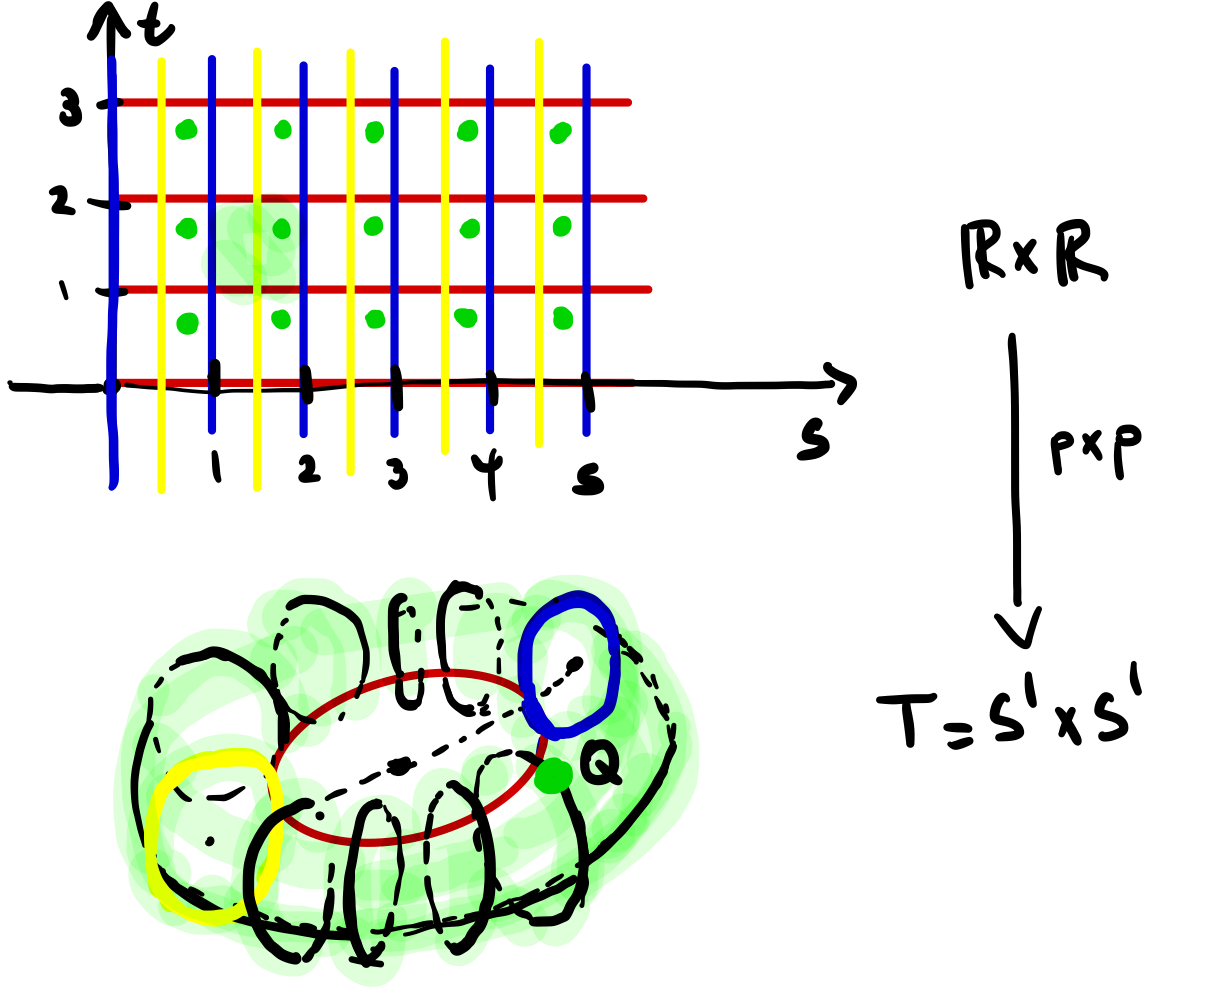 t
3
2
1
1 2 3 4 5
s
ℝ×ℝ
p×p
T=S¹×S¹
Q